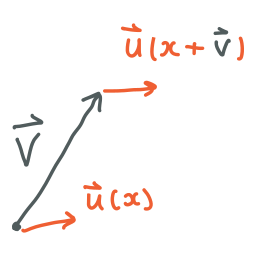 u⃗(x + v⃗)
V⃗
u⃗(x)